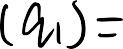 (q₁) =